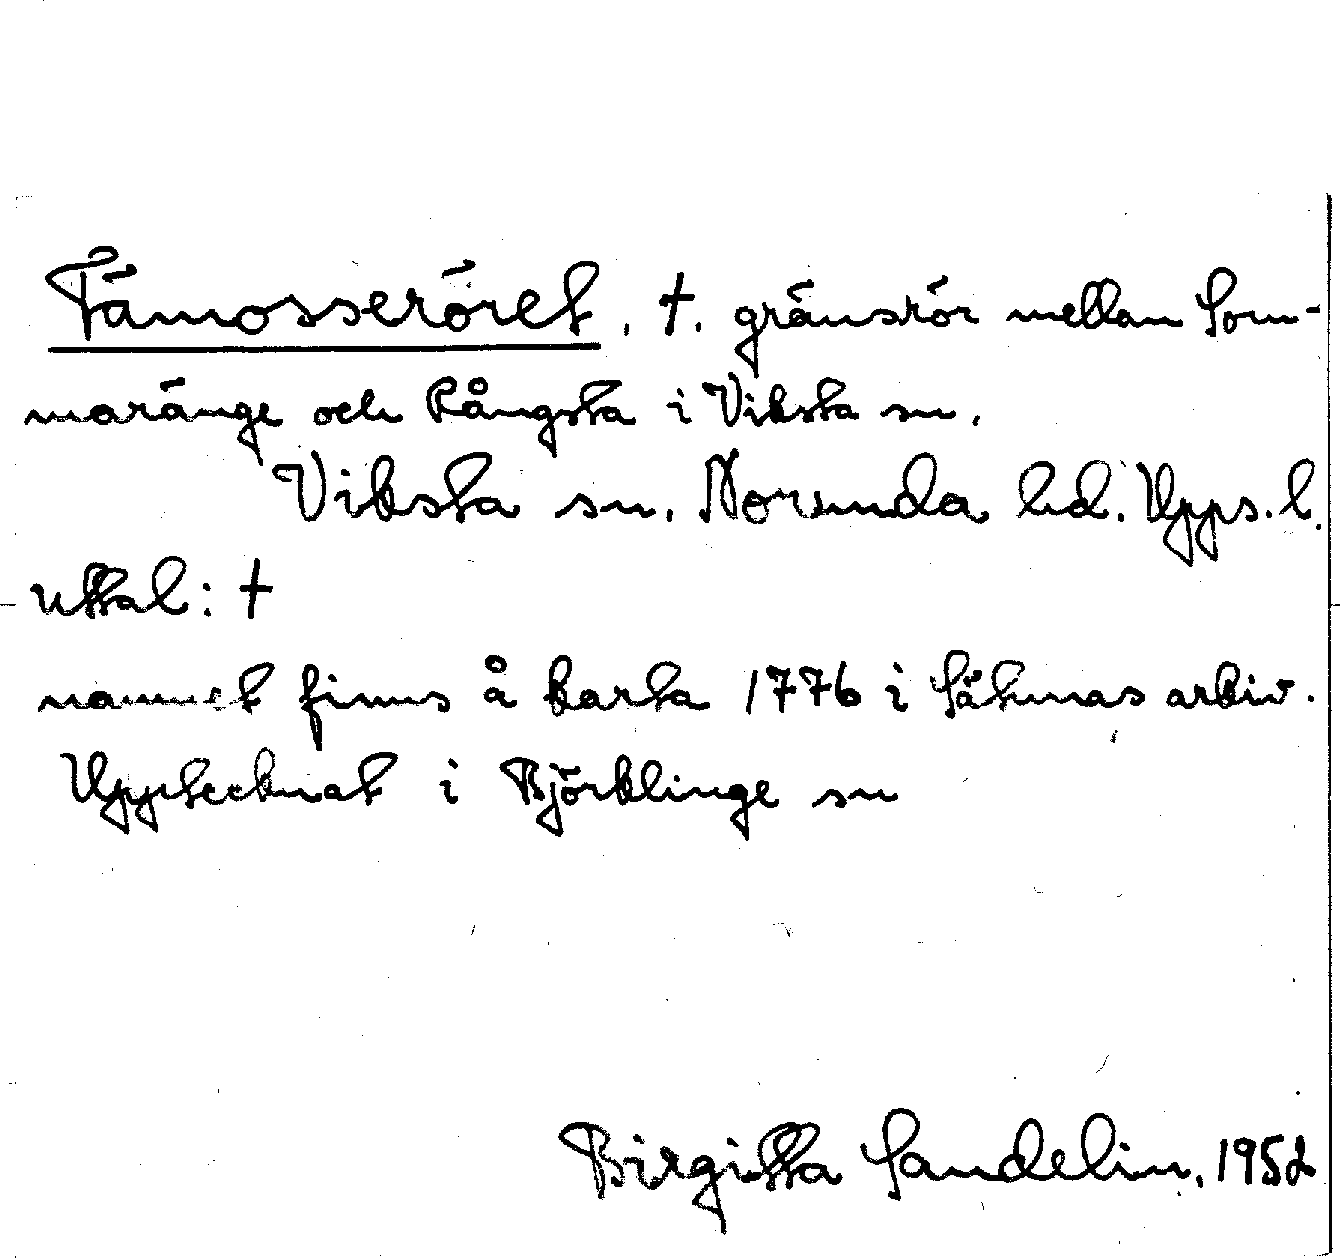 Tämosseröret, †. gränsrör mellan Som-
maränge och Rångsta i Viksta sn.
Viksta sn. Norunda hd. Upps. l.
uttal: †
namnet finns å karta 1776 i Sätunas arkiv.
Upptecknat i Björklinge sn
Birgitta Sandelin, 1952